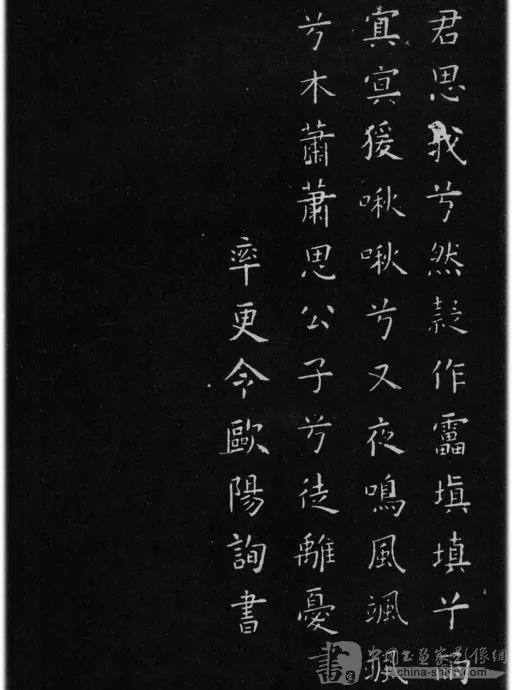 君思我兮然疑作靁填填兮雨
冥冥猨啾啾兮又夜鳴風颯颯
兮木蕭蕭思公子兮徒離憂
率更令歐陽詢書
china-shj.com